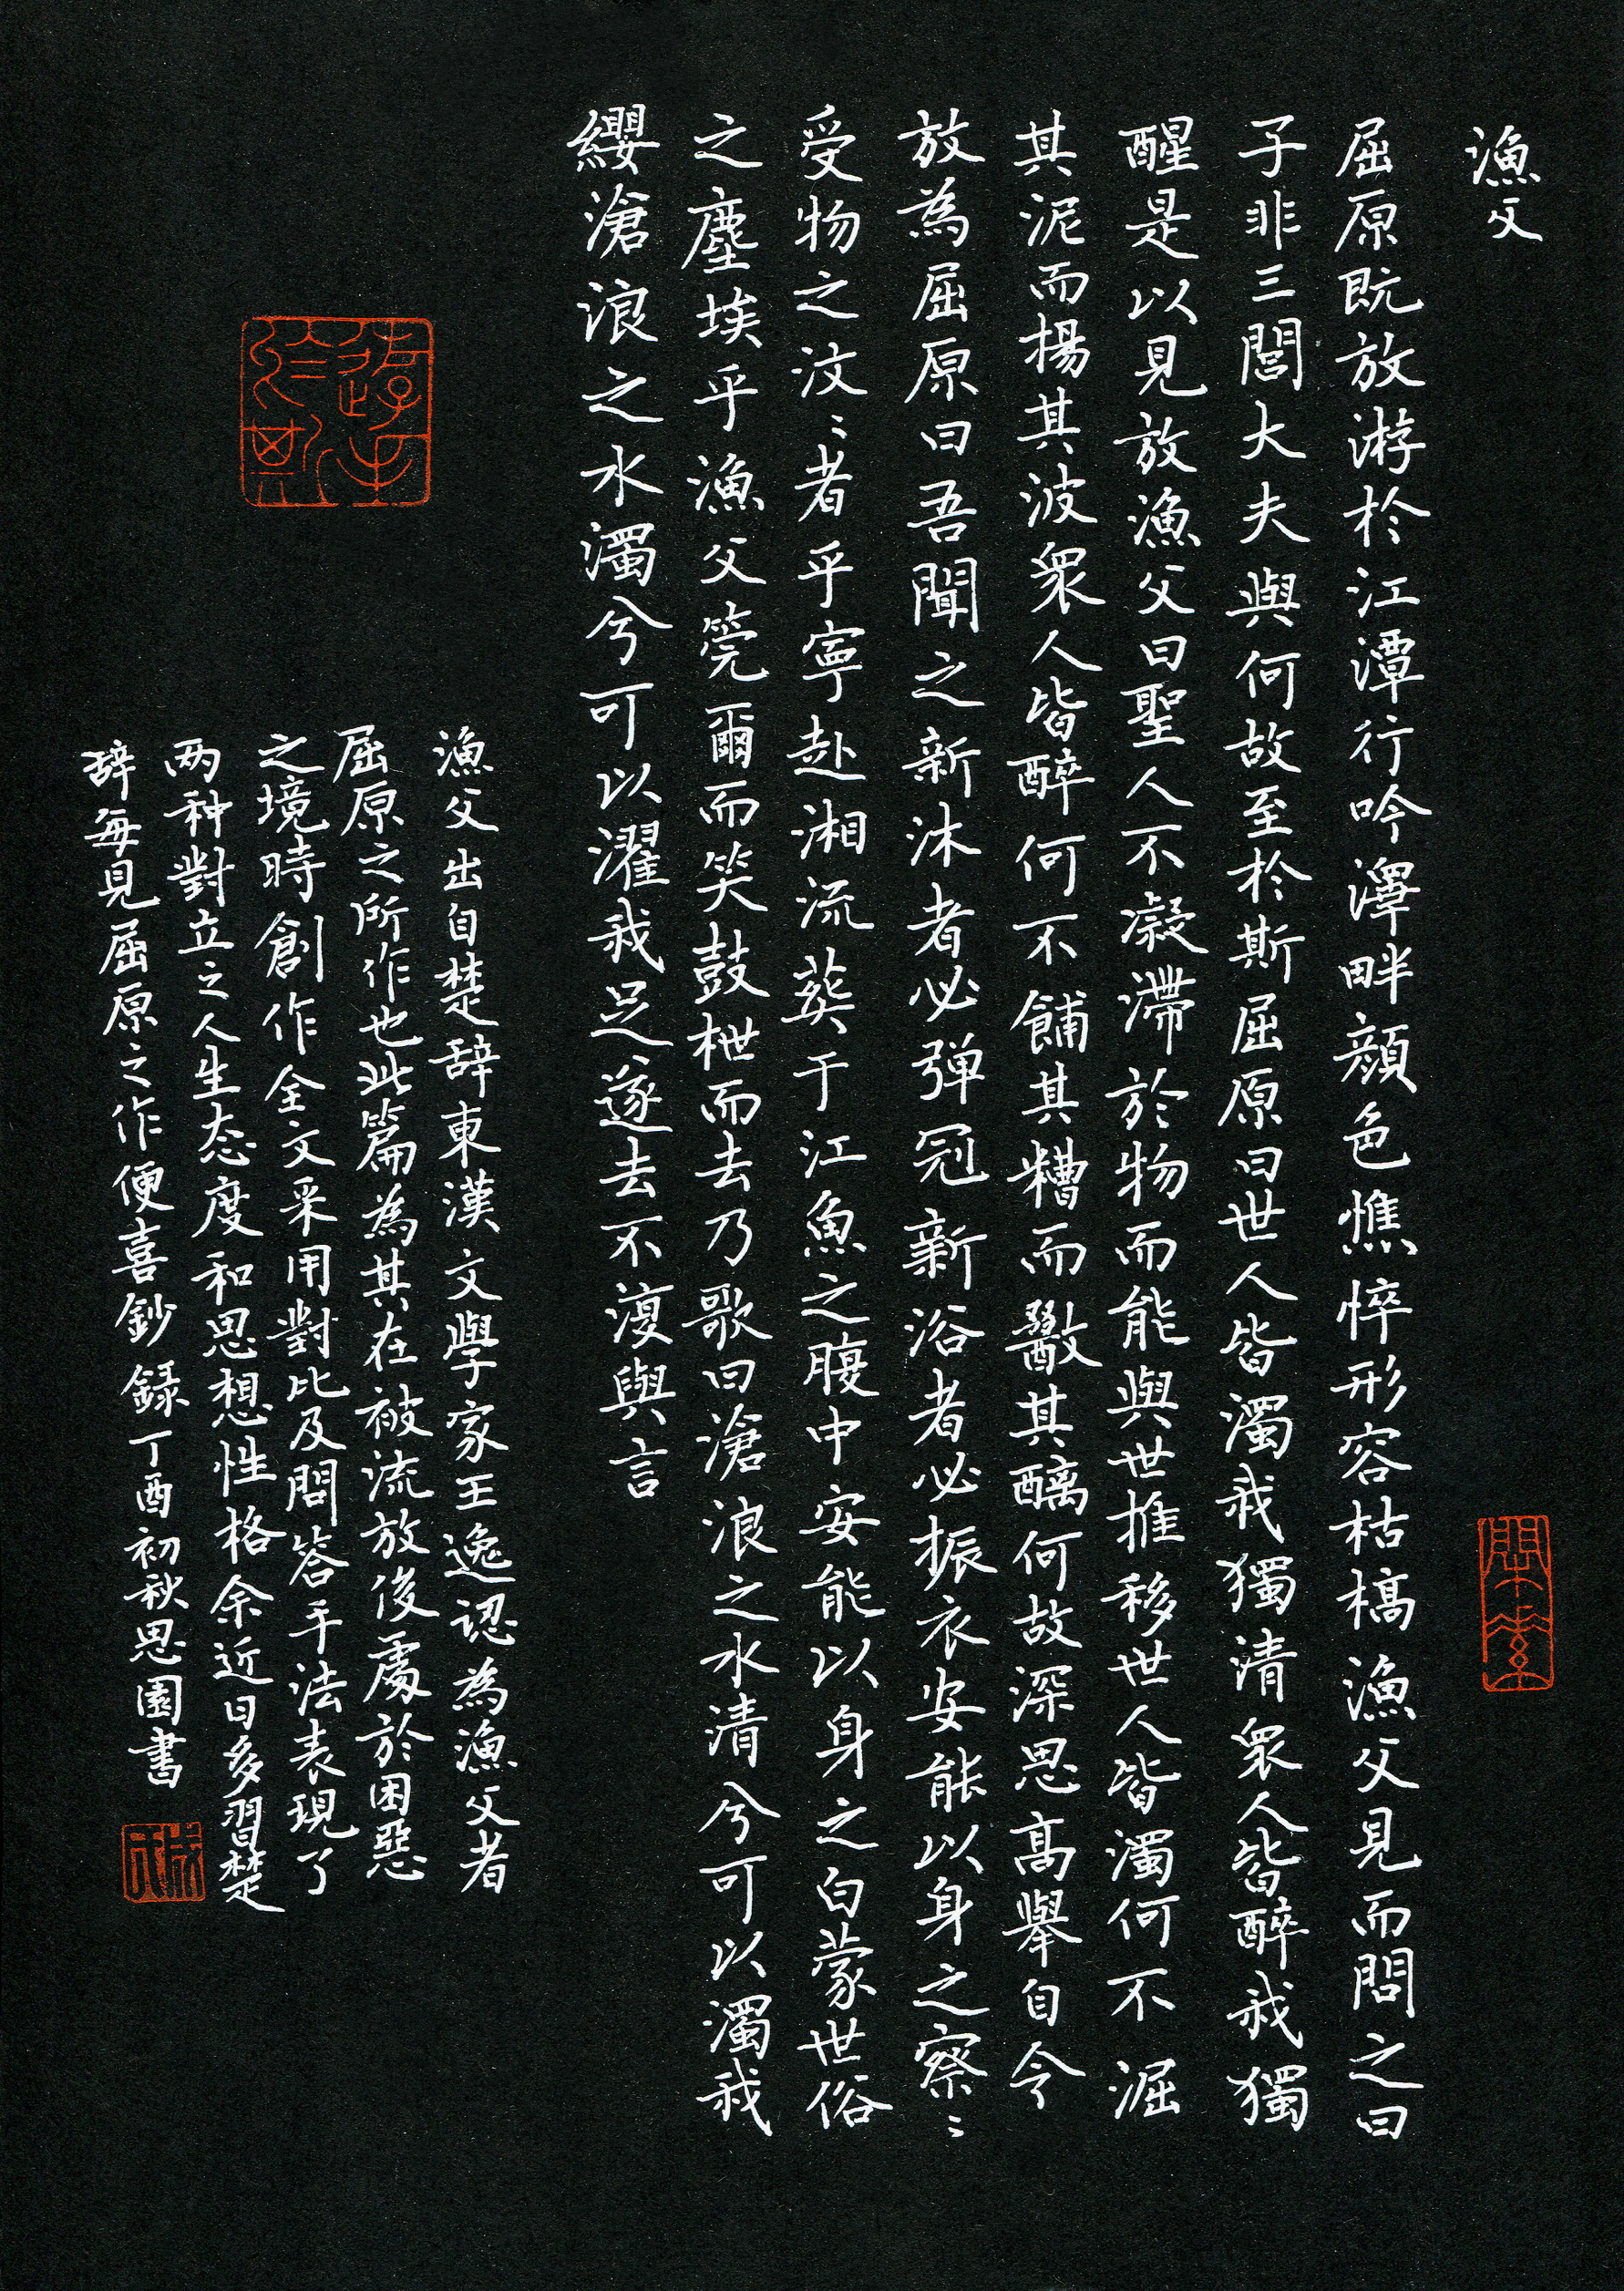 漁父
屈原既放游於江潭行吟澤畔顔色憔悴形容枯槁漁父見而問之曰
子非三閭大夫與何故至於斯屈原曰世人皆濁我獨清衆人皆醉我獨
醒是以見放漁父曰聖人不凝滯於物而能與世推移世人皆濁何不淈
其泥而揚其波衆人皆醉何不餔其糟而歠其醨何故深思高舉自令
放為屈原曰吾聞之新沐者必弹冠新浴者必振衣安能以身之察〻
受物之汶〻者乎寧赴湘流葬于江魚之腹中安能以身之白蒙世俗
之塵埃乎漁父筦爾而笑鼓枻而去乃歌曰滄浪之水清兮可以濁我
纓滄浪之水濁兮可以濯我足遂去不復與言
漁父出自楚辞東漢文學家王逸認為漁父者
屈原之所作也此篇為其在被流放後處於困惡
之境時創作全文采用對比及問答手法表現了
两种對立之人生态度和思想性格余近日多習楚
辞每見屈原之作便喜鈔録丁酉初秋思園書